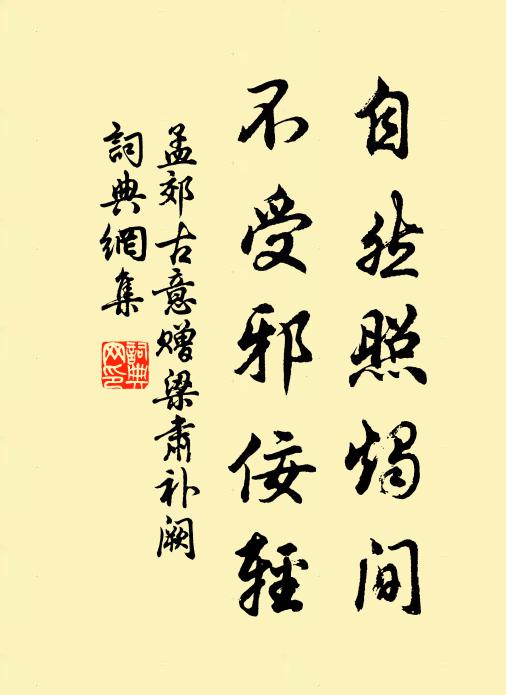 自然照烛间
不受邪佞輕
孟郊古意赠梁肃补阙
詞典網集
詞典
网印